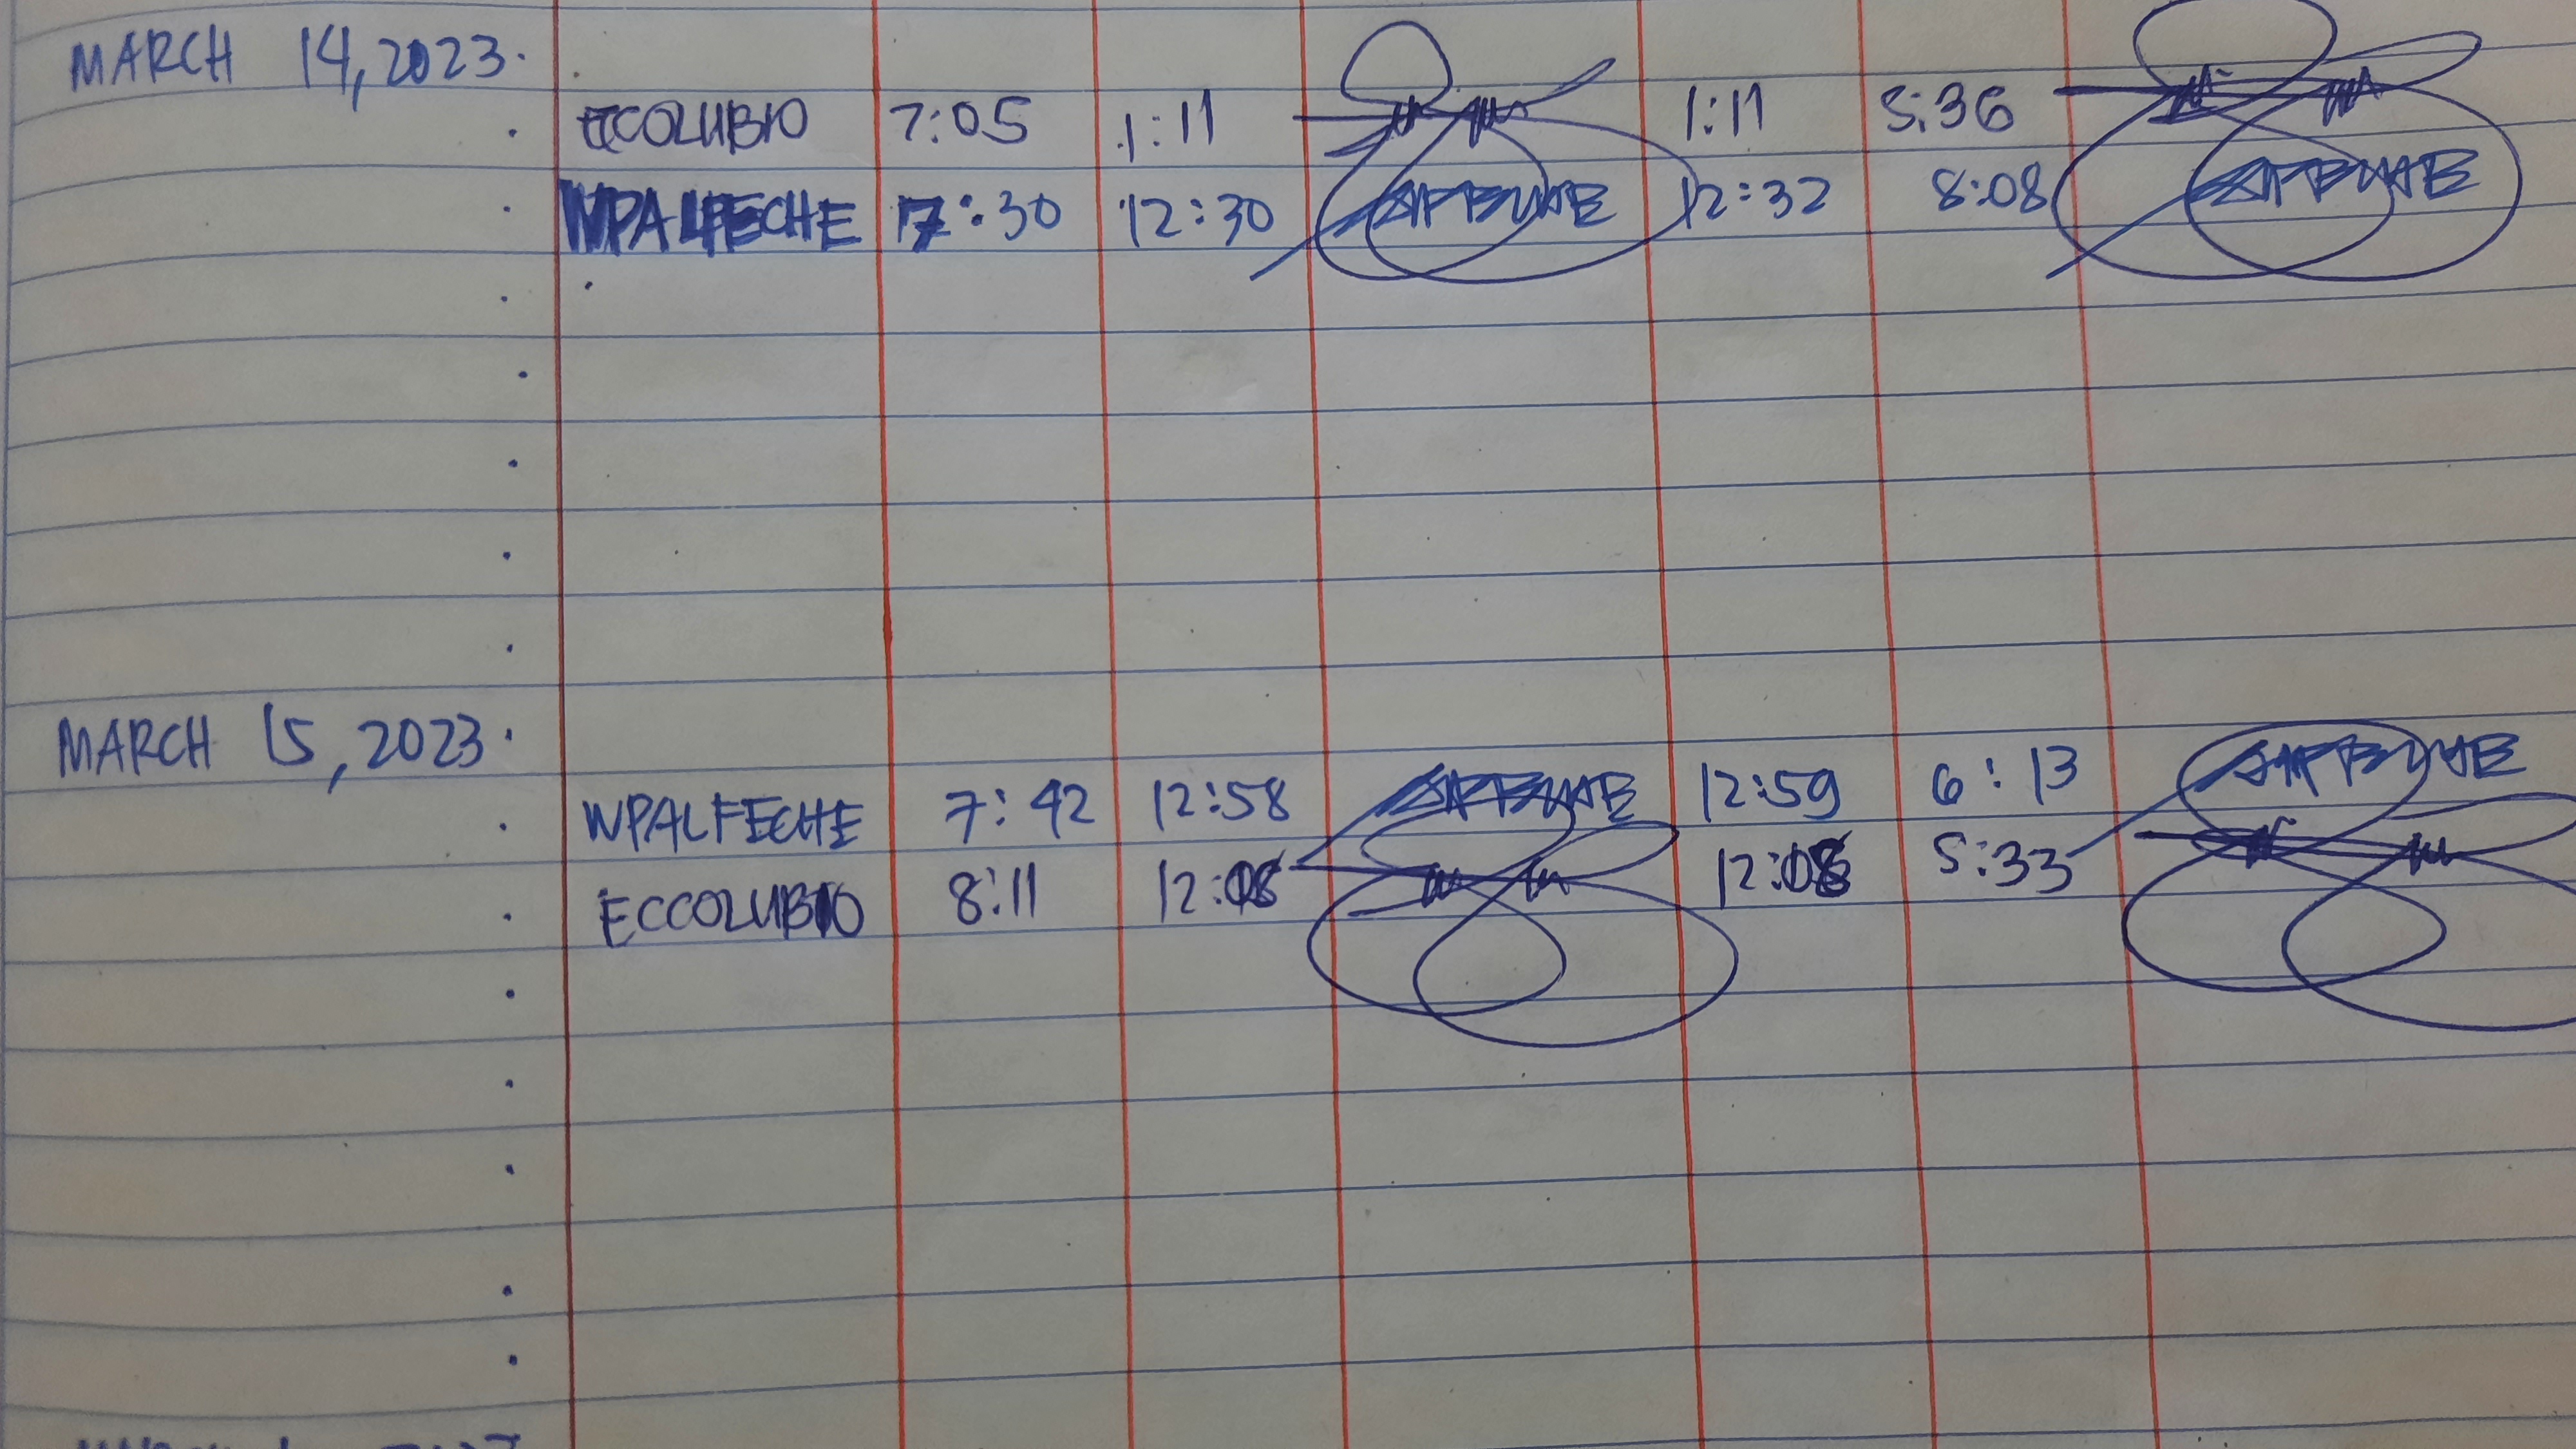 MARCH 14, 2023.
ECCOLUBIO 7:05 1:11 1:11 5:36
WPALFECHE 7:30 12:30 12:32 8:08
MARCH 15, 2023.
WPALFECHE 7:42 12:58 12:59 6:13
ECCOLUBIO 8:11 12:08 12:08 5:33